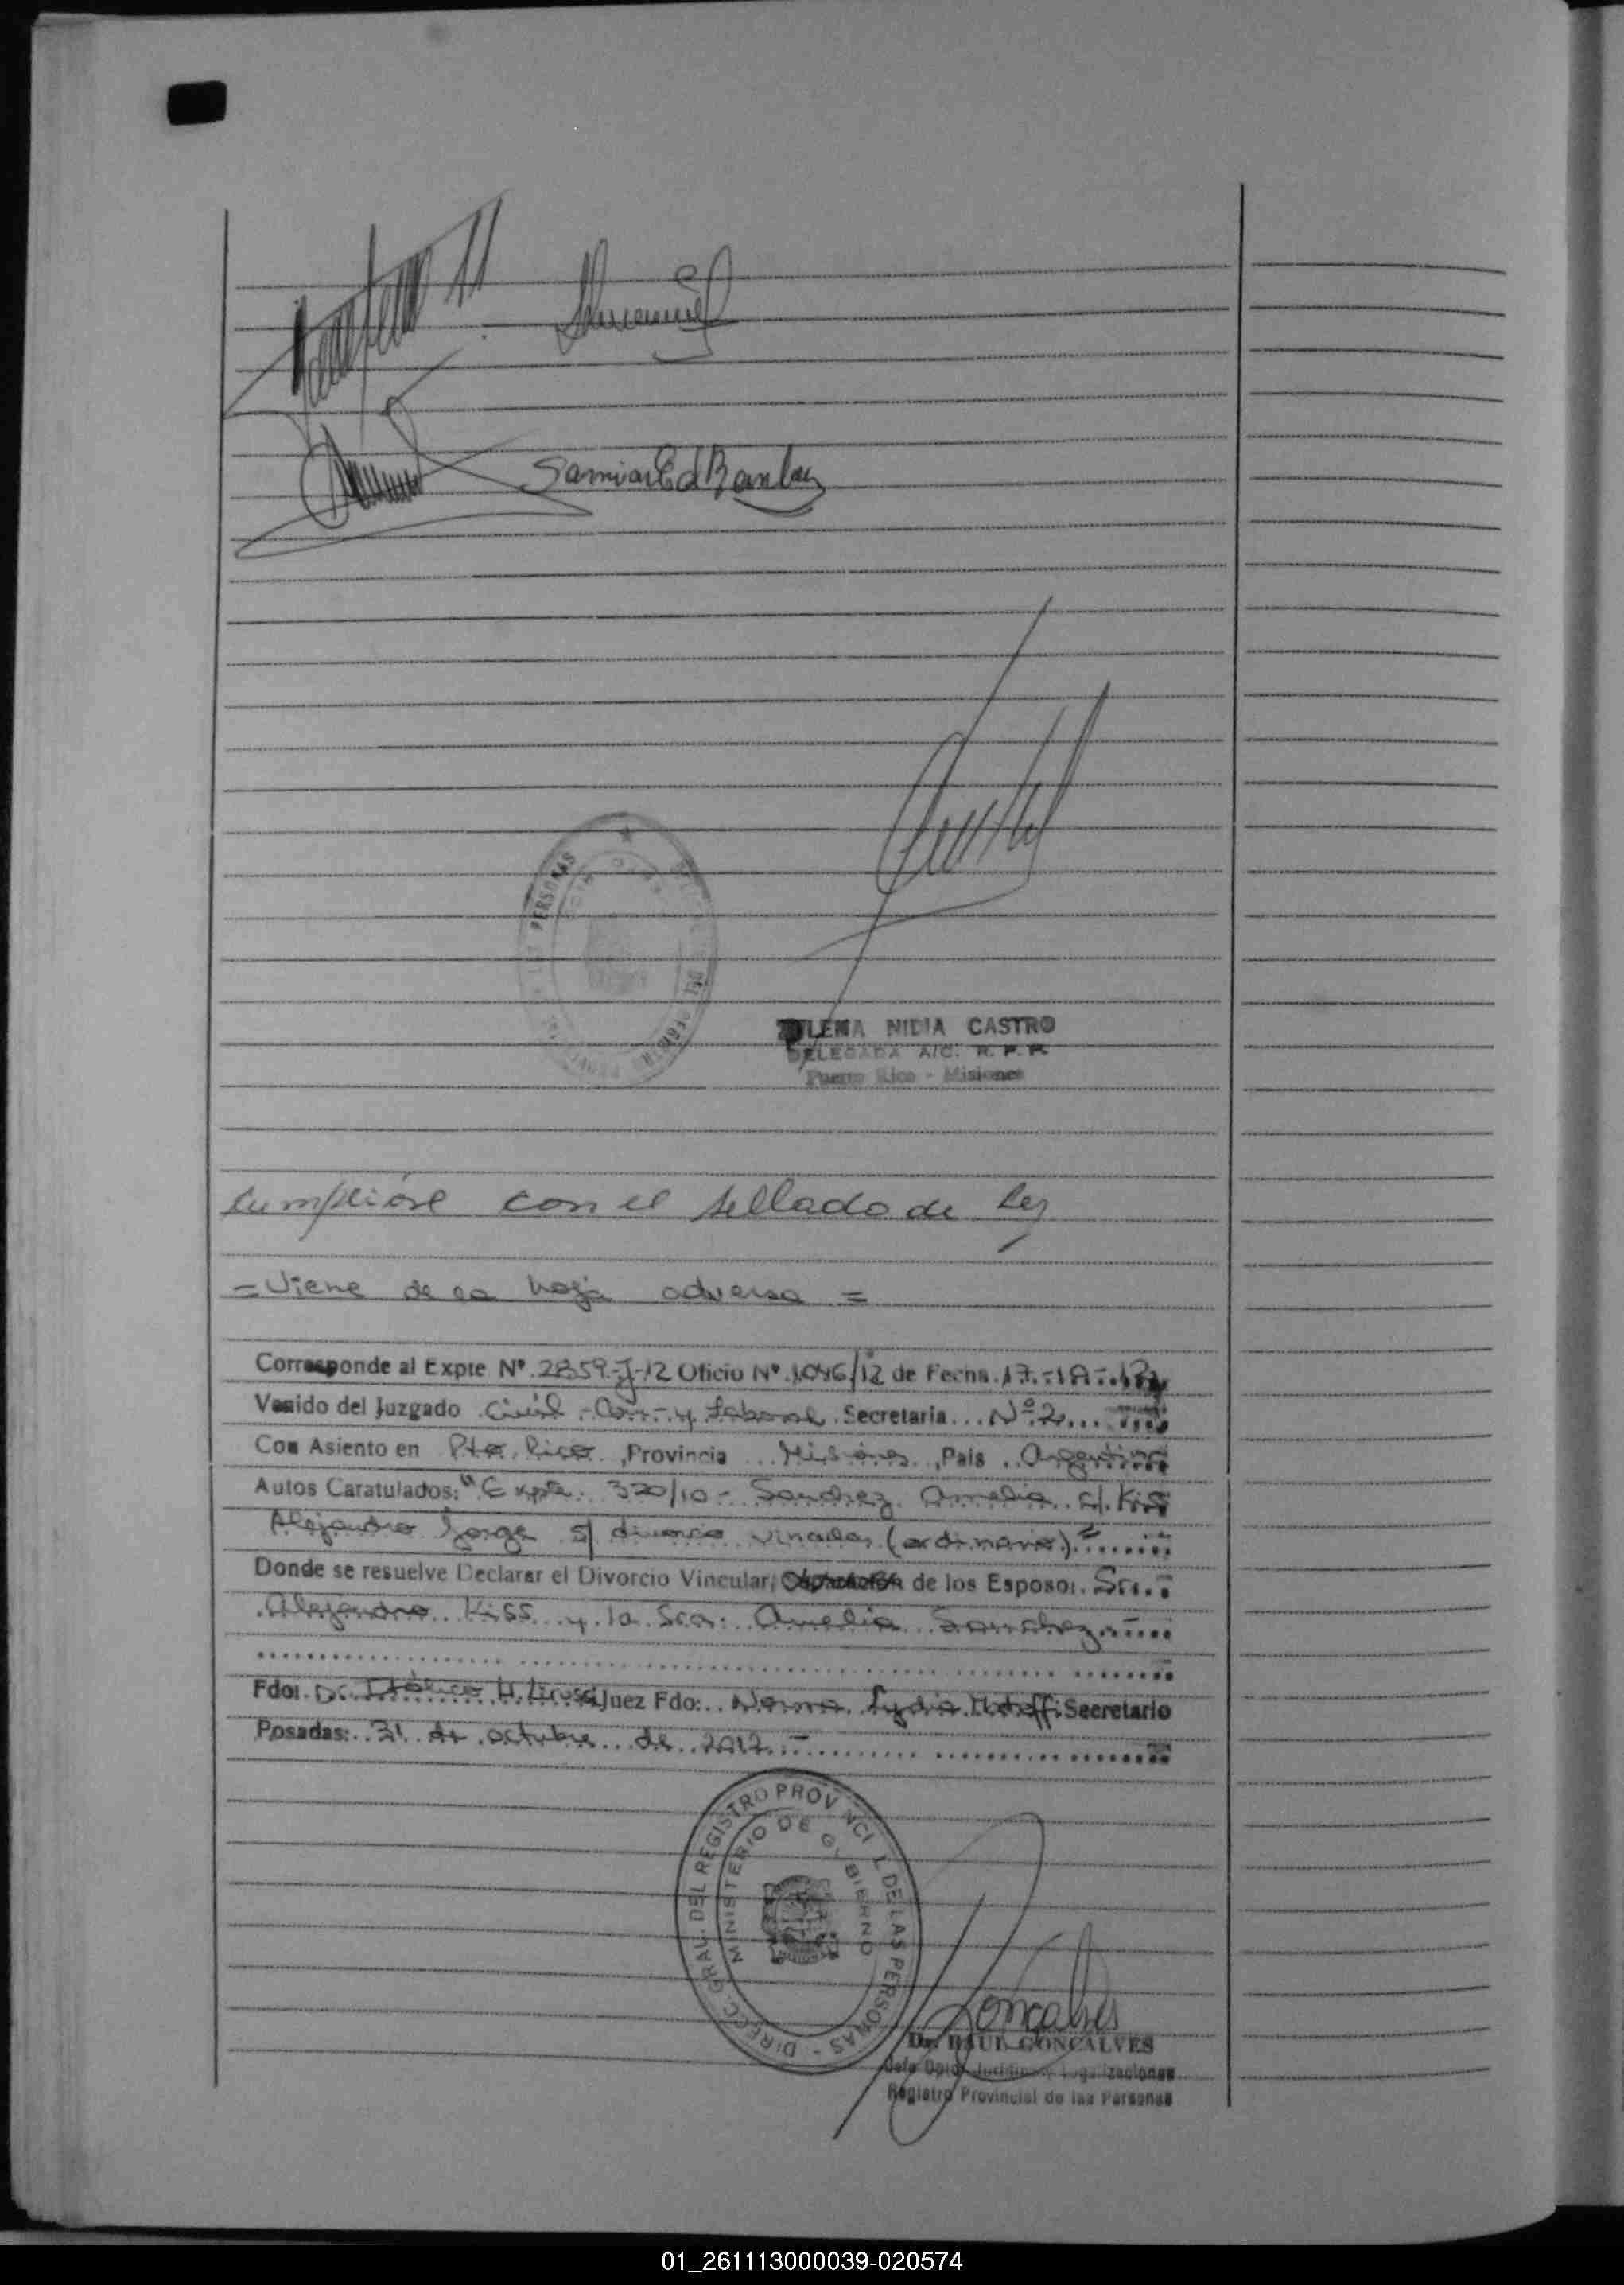 Samiar Ed Ranluz
PERSONAS
DEL REGISTRO
ZULEMA NIDIA CASTRO
DELEGADA A/C. R. P. P.
Puerto Rico - Misiones
Cumplióse con el sellado de Ley
= Viene de la hoja adversa =
Corresponde al Expte Nº 2859-J-12 Oficio Nº 1046/12 de Fecha 17-10-12
Venido del Juzgado Civil - Com - y Laboral Secretaria Nº 2
Con Asiento en Pto. Rico, Provincia Misiones, Pais Argentina
Autos Caratulados: "Expte. 320/10 - Sanchez Amelia c/ Kiss
Alejandro Jorge s/ divorcio vincular (ordinario)"
Donde se resuelve Declarar el Divorcio Vincular, de los Esposos: Sr.
Alejandro Kiss y la Sra: Amelia Sanchez
Fdo: Dr. Juez Fdo: Norma Lydia Secretario
Posadas: 31 de octubre de 2012
DIRECC. GRAL. DEL REGISTRO PROVINCIAL DE LAS PERSONAS -
MINISTERIO DE GOBIERNO
Goncalves
Dr. RAUL GONCALVES
Jefe Dpto. Juridico y Legalizaciones
Registro Provincial de las Personas
01_261113000039-020574